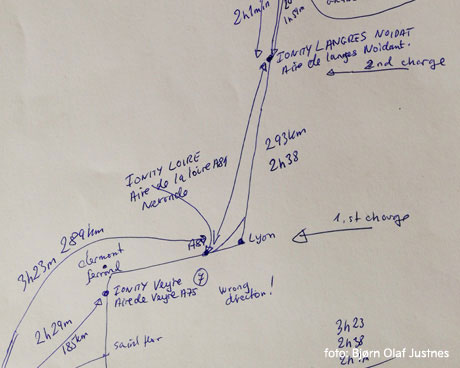 2h1min
1h54m
IONITY LANGRES NOIDAT
Aire de langes Noidant.
2nd charge
293km
2h38
IONITY LOIRE
Aire de la loire A89
Neronde
1.st charge
A89
Lyon
3h23m 289km
clermont
ferrand
IONITY Veyre
Aire de Veyre A75
7
Wrong
direction!
2h29m
185km
3h23
2h38
foto: Bjørn Olaf Justnes